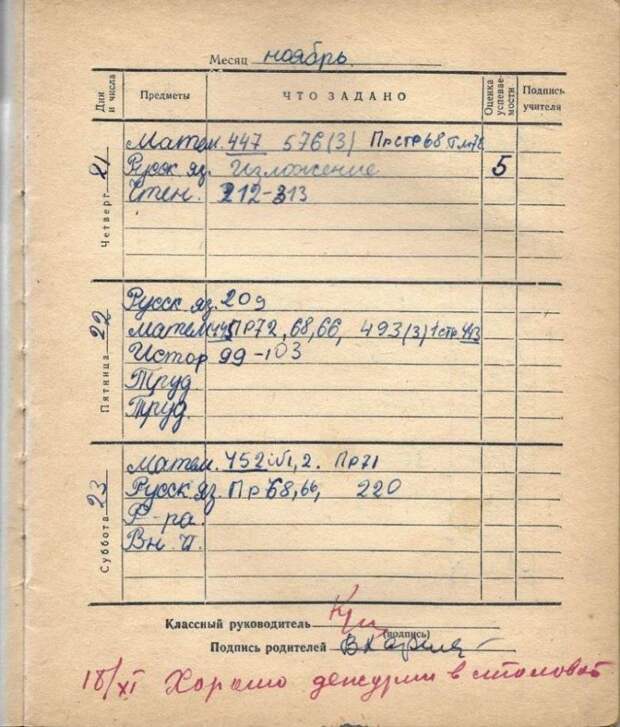 Месяц ноябрь.
Дни и числа Предметы ЧТО ЗАДАНО Оценка успевае- мости Подпись учителя
Четверг 21
Матем. 447 576(3) Пр стр 68
Русск яз. Изложение 5
Чтен. 212-313
Пятница 22
Русск яз. 209
Матем ПР72, 68, 66, 493(3) 1 стр
Истор 99-103
Труд.
Труд.
Суббота 23
Матем. 452 1, 2. Пр71
Русск яз. Пр 68, 66, 220
Ф-ра.
Вн. ч.
Классный руководитель
(подпись)
Подпись родителей
18/XI Хорошо дежурил в столовой